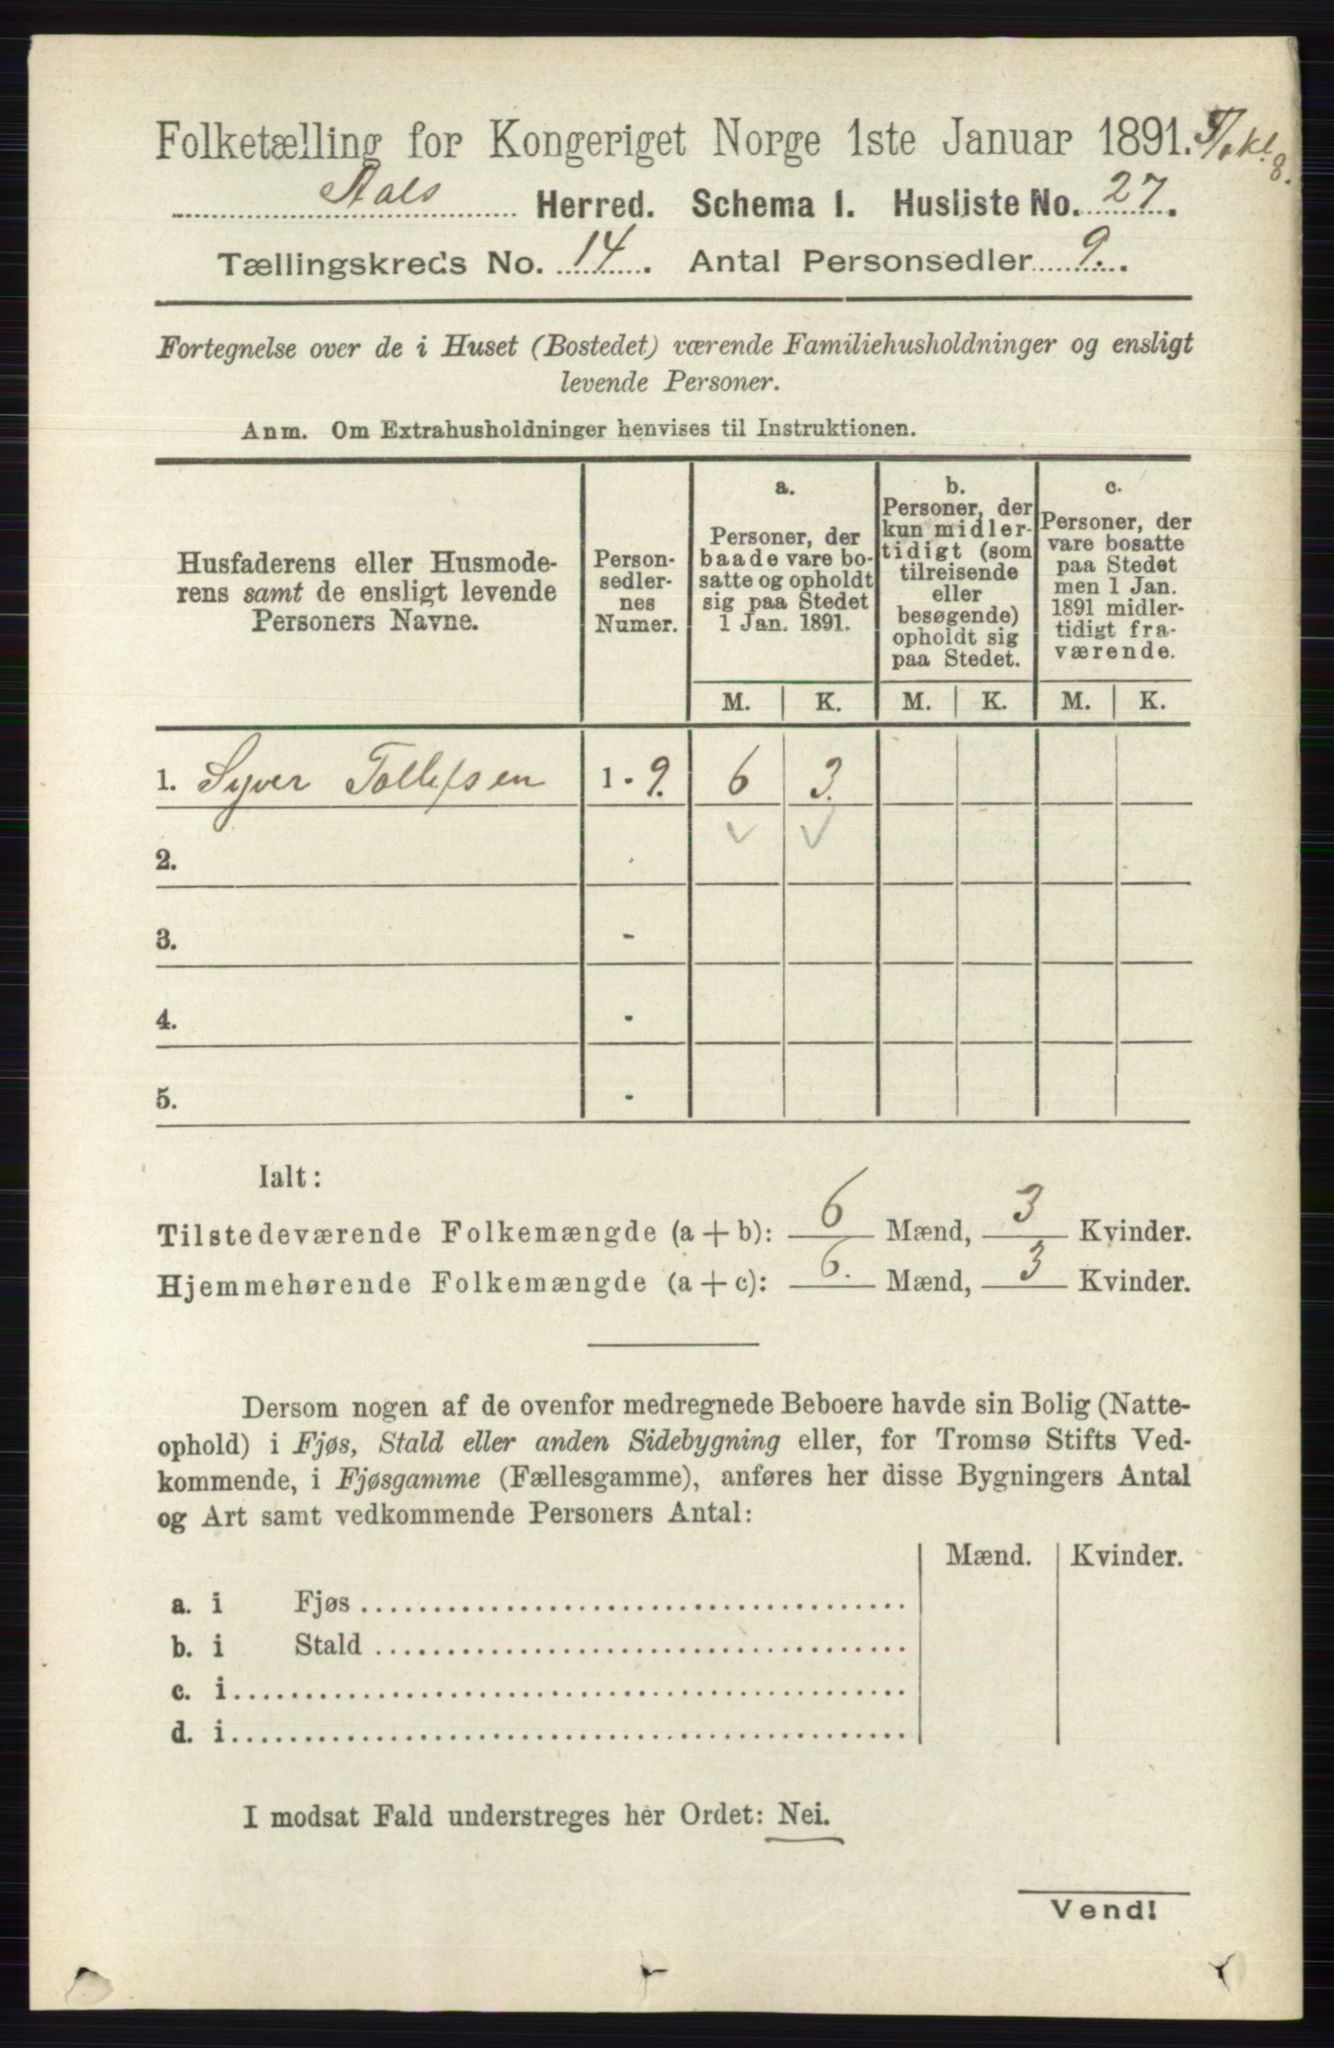 Folketælling for Kongeriget Norge 1ste Januar 1891.
Aals Herred. Schema I. Husliste No. 27.
Tællingskreds No. 14. Antal Personsedler 9.
Fortegnelse over de i Huset (Bostedet) værende Familiehusholdninger og ensligt
levende Personer.
Anm. Om Extrahusholdninger henvises til Instruktionen.
Husfaderens eller Husmode-
rens samt de ensligt levende
Personers Navne.
Person-
sedler-
nes
Numer.
a.
Personer, der
baade vare bo-
satte og opholdt
sig paa Stedet
1 Jan. 1891.
b.
Personer, der
kun midler-
tidigt (som
tilreisende
eller
besøgende)
opholdt sig
paa Stedet.
c.
Personer, der
vare bosatte
paa Stedet
men 1 Jan.
1891 midler-
tidigt fra-
værende.
M. K. M. K. M. K.
1. Syver Tollefsen 1 - 9. 6 3.
2.
3. -
4. -
5. -
Ialt:
Tilstedeværende Folkemængde (a + b): 6 Mænd, 3 Kvinder.
Hjemmehørende Folkemængde (a + c): 6. Mænd, 3 Kvinder.
Dersom nogen af de ovenfor medregnede Beboere havde sin Bolig (Natte-
ophold) i Fjøs, Stald eller anden Sidebygning eller, for Tromsø Stifts Ved-
kommende, i Fjøsgamme (Fællesgamme), anføres her disse Bygningers Antal
og Art samt vedkommende Personers Antal:
Mænd. Kvinder.
a. i Fjøs
b. i Stald
c. i
d. i
I modsat Fald understreges her Ordet: Nei.
Vend!